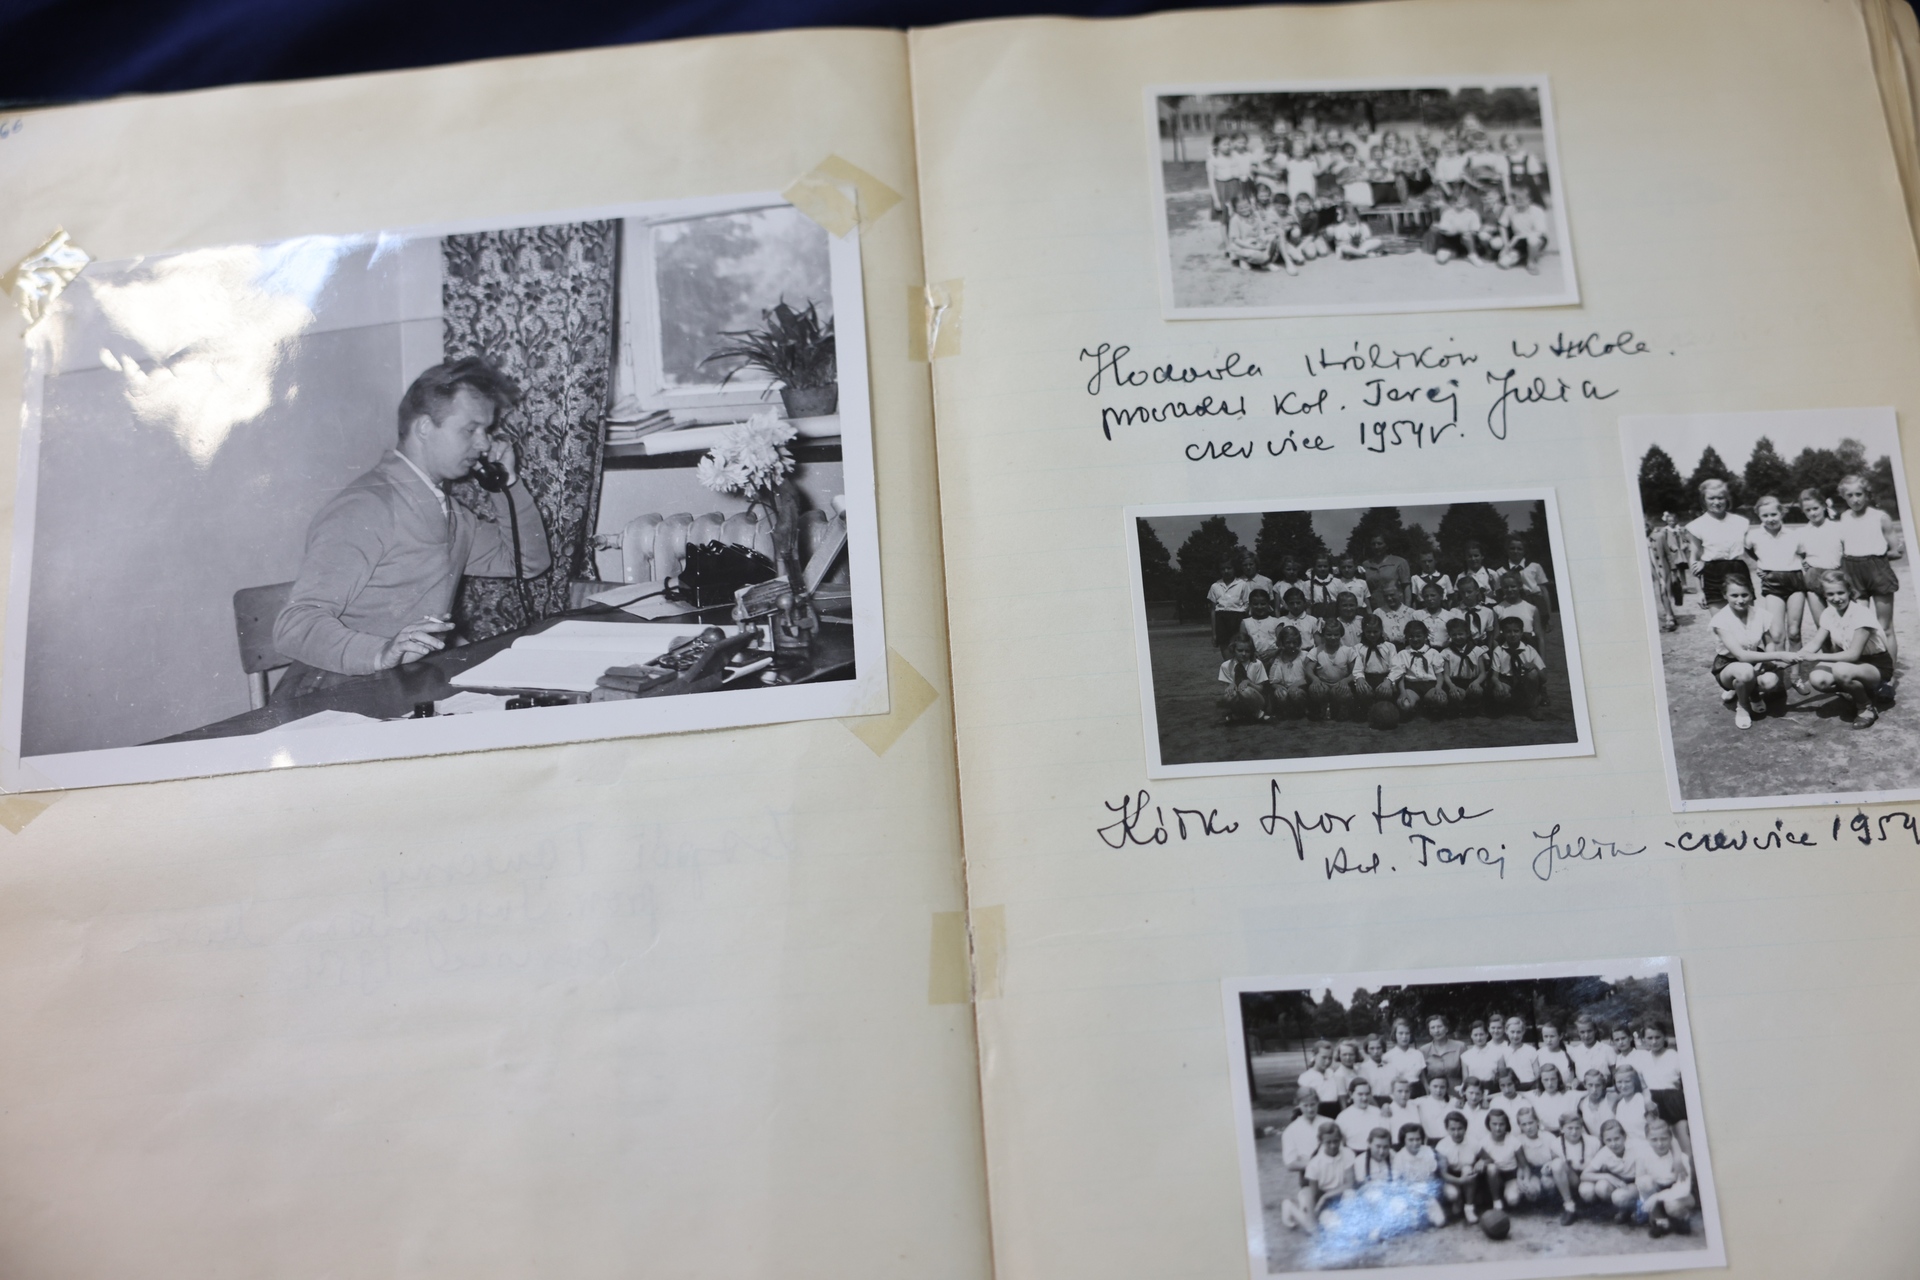 66
Hodowla królików w szkole.
prowadzi kol. Jarej Julia
czerwiec 1954 r.
Kółko Sportowe
kol. Jarej Julia - czerwiec 1954